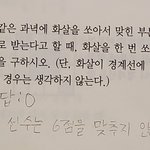 같은 과녁에 화살을 쏘아서 맞힌 부분
로 받는다고 할 때, 화살을 한 번 쏘
을 구하시오. (단, 화살이 경계선에
경우는 생각하지 않는다.)
답: 0
선수는 6점을 맞추지 안